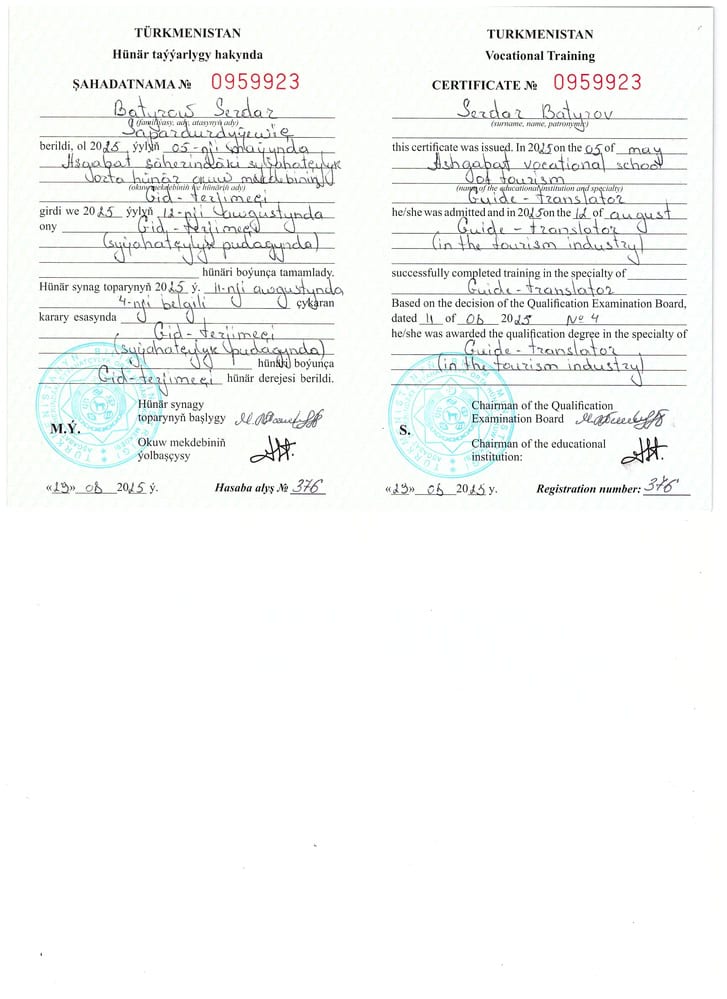 TÜRKMENISTAN
Hünär taýýarlygy hakynda
ŞAHADATNAMA № 0959923
Batyrow Serdar
(familiýasy, ady, atasynyň ady)
Sapardurdyýewiç
berildi, ol 2025 ýylyň 05-nji maýynda
Aşgabat şäherindäki syýahatçylyk
orta hünär okuw mekdebiniň
(okuw mekdebiniň we hünäriň ady)
Gid-terjimeçi
girdi we 2025 ýylyň 12-nji awgustynda
ony Gid-terjimeçi
(syýahatçylyk pudagynda)
hünäri boýunça tamamlady.
Hünär synag toparynyň 2025 ý. 11-nji awgustynda
4-nji belgili çykaran
karary esasynda
Gid-terjimeçi
(syýahatçylyk pudagynda)
hünäri boýunça
Gid-terjimeçi hünär derejesi berildi.
Hünär synagy
toparynyň başlygy
M.Ý.
Okuw mekdebiniň
ýolbaşçysy
«13» 08 2025 ý. Hasaba alyş № 376
TURKMENISTAN
Vocational Training
CERTIFICATE № 0959923
Serdar Batyrov
(surname, name, patronymic)
this certificate was issued. In 2025 on the 05 of may
Ashgabat vocational school
of tourism
(name of the educational institution and specialty)
Guide-translator
he/she was admitted and in 2025 on the 12 of august
Guide-translator
(in the tourism industry)
successfully completed training in the specialty of
Guide-translator
Based on the decision of the Qualification Examination Board,
dated 11 of 08 2025 № 4
he/she was awarded the qualification degree in the specialty of
Guide-translator
(in the tourism industry)
Chairman of the Qualification
Examination Board
S.
Chairman of the educational
institution:
«13» 08 2025 y. Registration number: 376